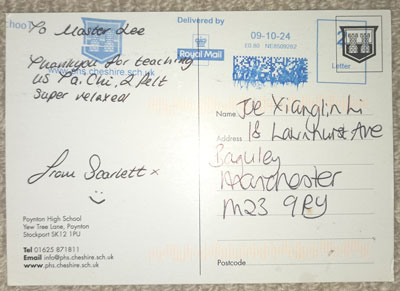 To Master Lee
Thankyou for teaching
us Tai Chi, I felt
super relaxed
from Scarlett x
Poynton High School
Yew Tree Lane, Poynton
Stockport SK12 1PU
Tel 01625 871811
Email info@phs.cheshire.sch.uk
www.phs.cheshire.sch.uk
Delivered by
Royal Mail
09-10-24
Letter
www.phs.cheshire.sch.uk
Name Joe Xianglin Li
Address 18 Lawnhurst Ave
Baguley
Manchester
M23 9RY
Postcode